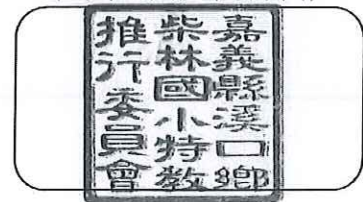 嘉義縣溪口鄉
柴林國小特教
推行委員會